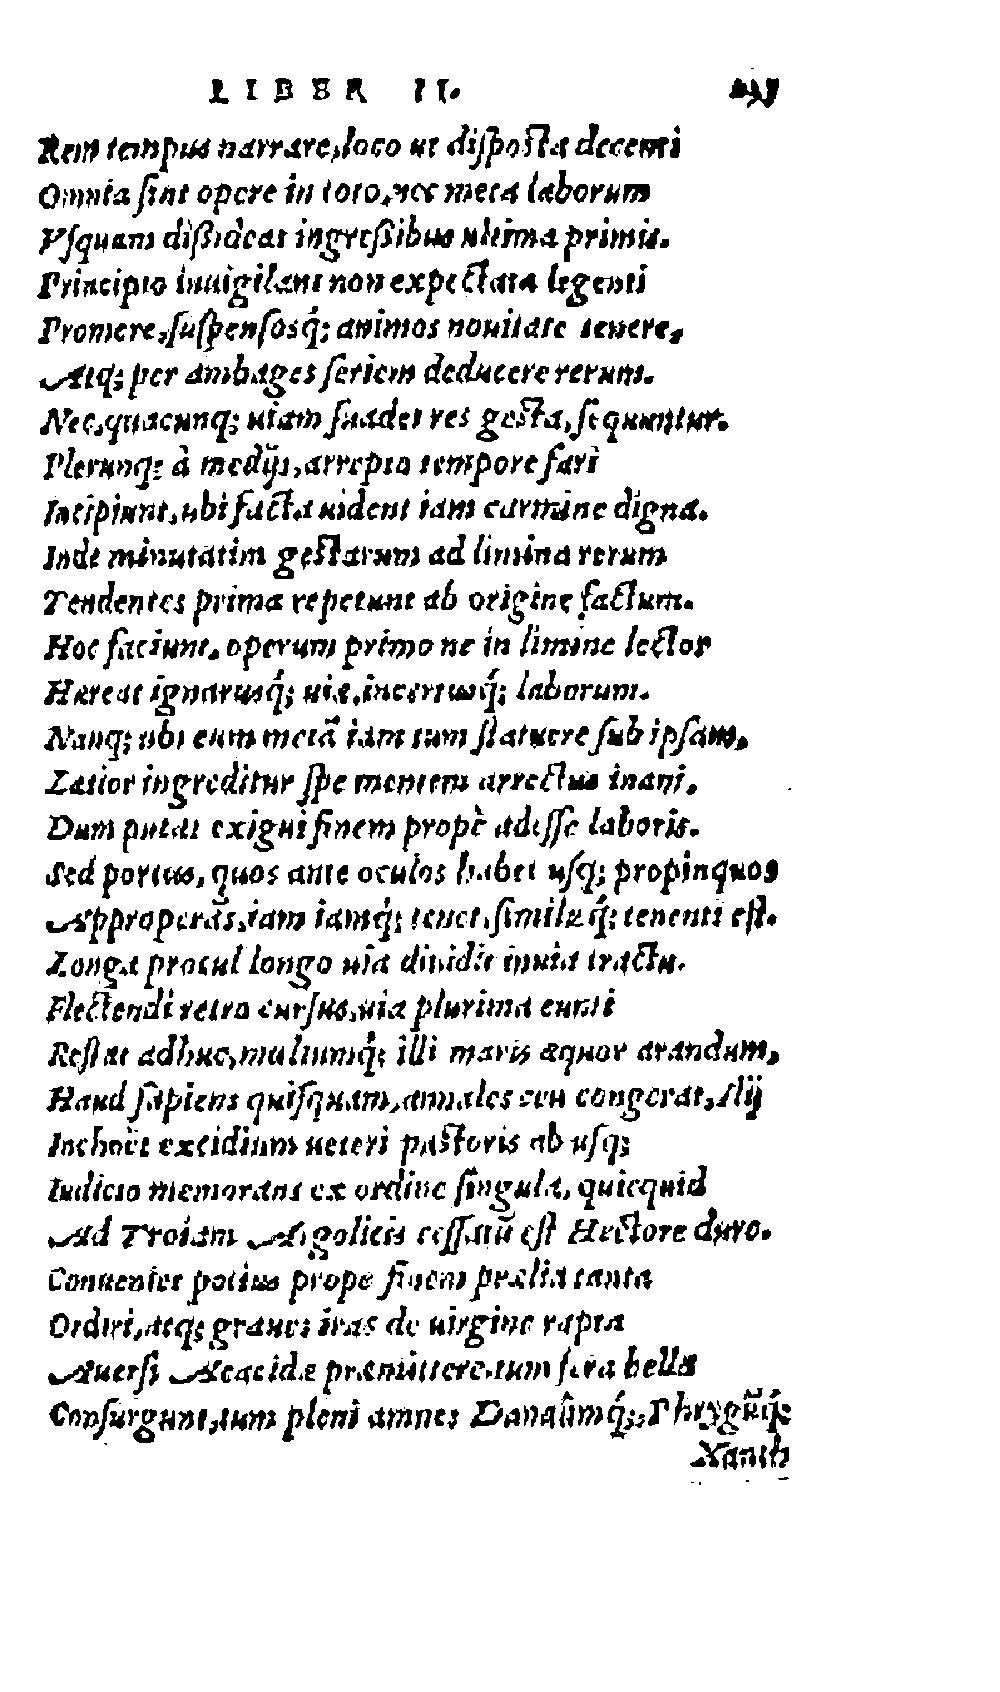 LIBER II.
Rem tempus narrare, loco ut diſpoſta decenti
Omnia ſint opere in toto, nec meta laborum
Vſquam diſsideat ingreſſibus ultima primis.
Principio inuigilant non expectata legenti
Promere, ſuſpenſosq́; animos nouitate tenere,
Atq; per ambages ſeriem deducere rerum.
Nec, quacunq; uiam ſuadet res geſta, ſequuntur.
Plerunq; à medijs, arrepto tempore fari
Incipiunt, ubi facta uident iam carmine digna.
Inde minutatim geſtarum ad limina rerum
Tendentes prima repetunt ab origine factum.
Hoc faciunt, operum primo ne in limine lector
Hæreat ignarusq́; uiæ, incertusq́; laborum.
Nanq; ubi eum metã iam tum ſtatuere ſub ipſam,
Latior ingreditur ſpe mentem arrectus inani,
Dum putat exigui finem propè adeſſe laboris.
Sed portus, quos ante oculos habet uſq; propinquos
Approperãs, iam iamq́; tenet, ſimilæq́; tenenti eſt.
Longa procul longo uia diuidit inuia tractu.
Flectendi retro curſus, uia plurima eunti
Reſtat adhuc, multumq́; illi maris æquor arandum,
Haud ſapiens quiſquam, annales ceu congerat, Ilij
Inchoët excidium ueteri paſtoris ab uſq;
Iudicio memorans ex ordine ſingula, quicquid
Ad Troiam Argolicis ceſſatũ eſt Hectore duro.
Conueniet potius prope finem prælia tanta
Ordiri, atq; graues iras de uirgine rapta
Auerſi Aeacidæ præmittere, tum fera bella
Conſurgunt, tum pleni amnes Danaûmq́;, Phrygũq́;
Xanth